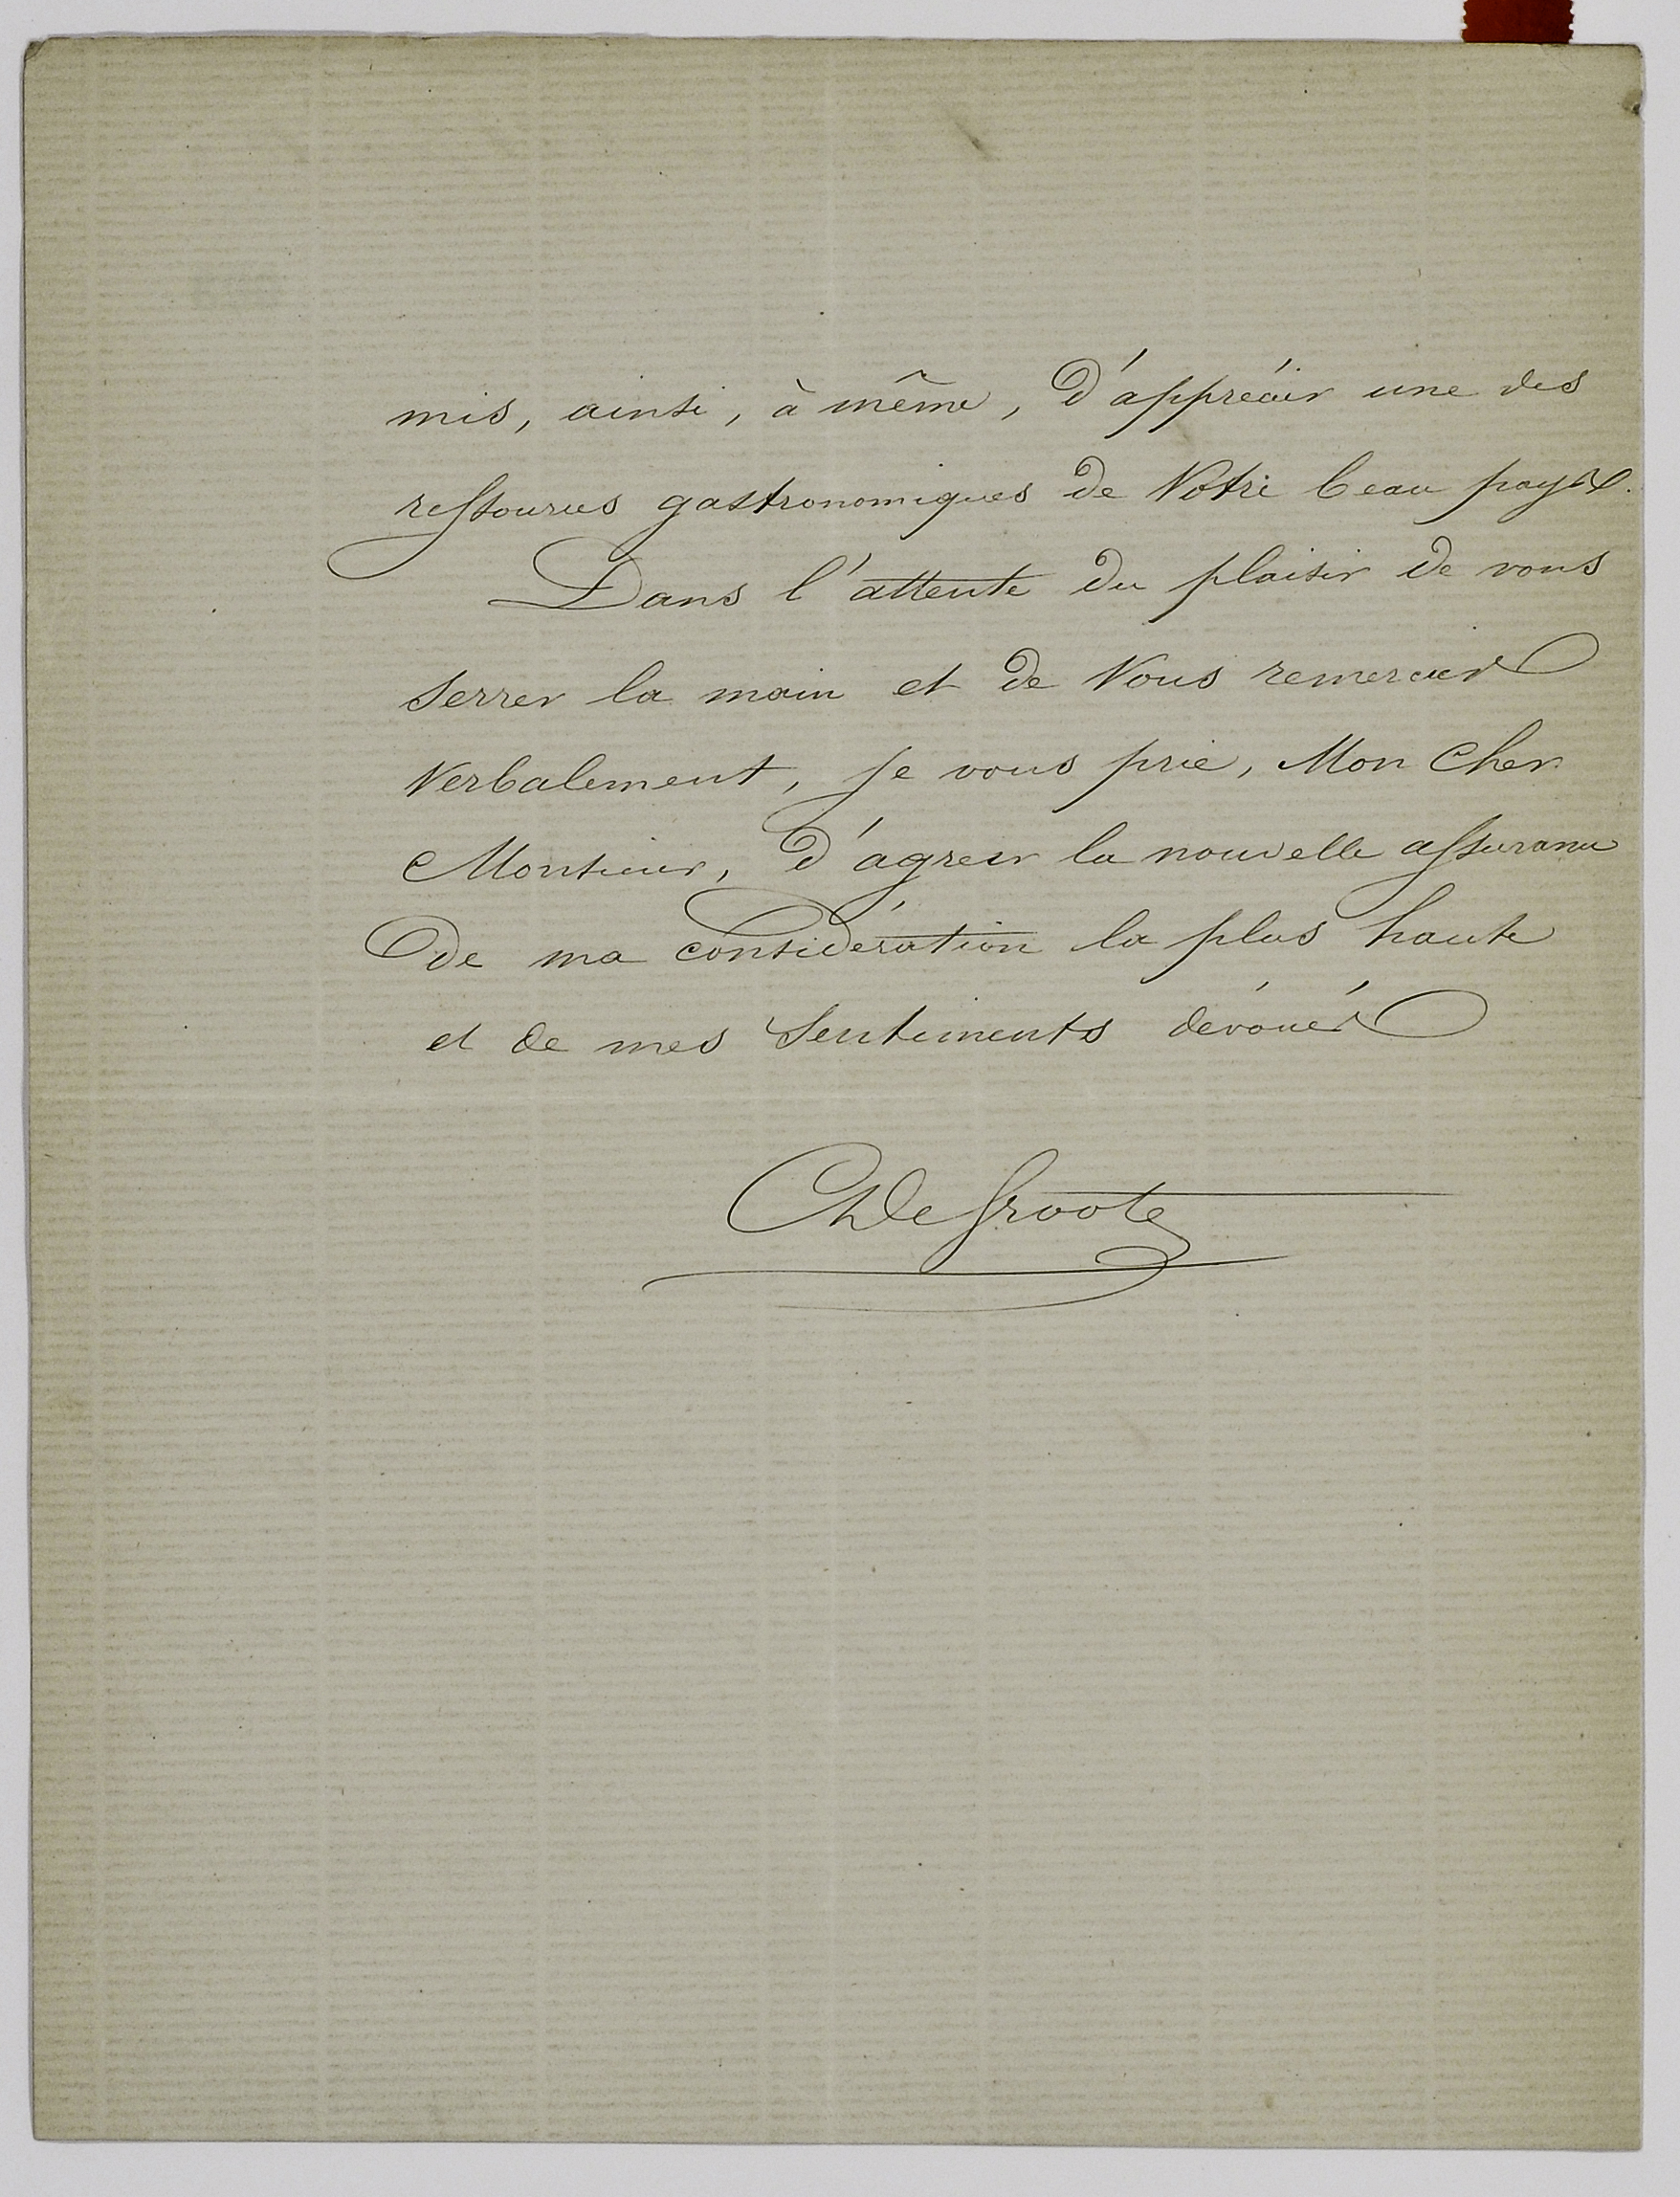 mis, ainsi, à même, d'apprécier une des
ressources gastronomiques de Votre beau pays.
Dans l'attente du plaisir de vous
serrer la main et de Vous remercier
Verbalement, je vous prie, Mon Cher
Monsieur, d'agréer la nouvelle assurance
de ma considération la plus haute
et de mes Sentiments dévoués
Ch De Groote